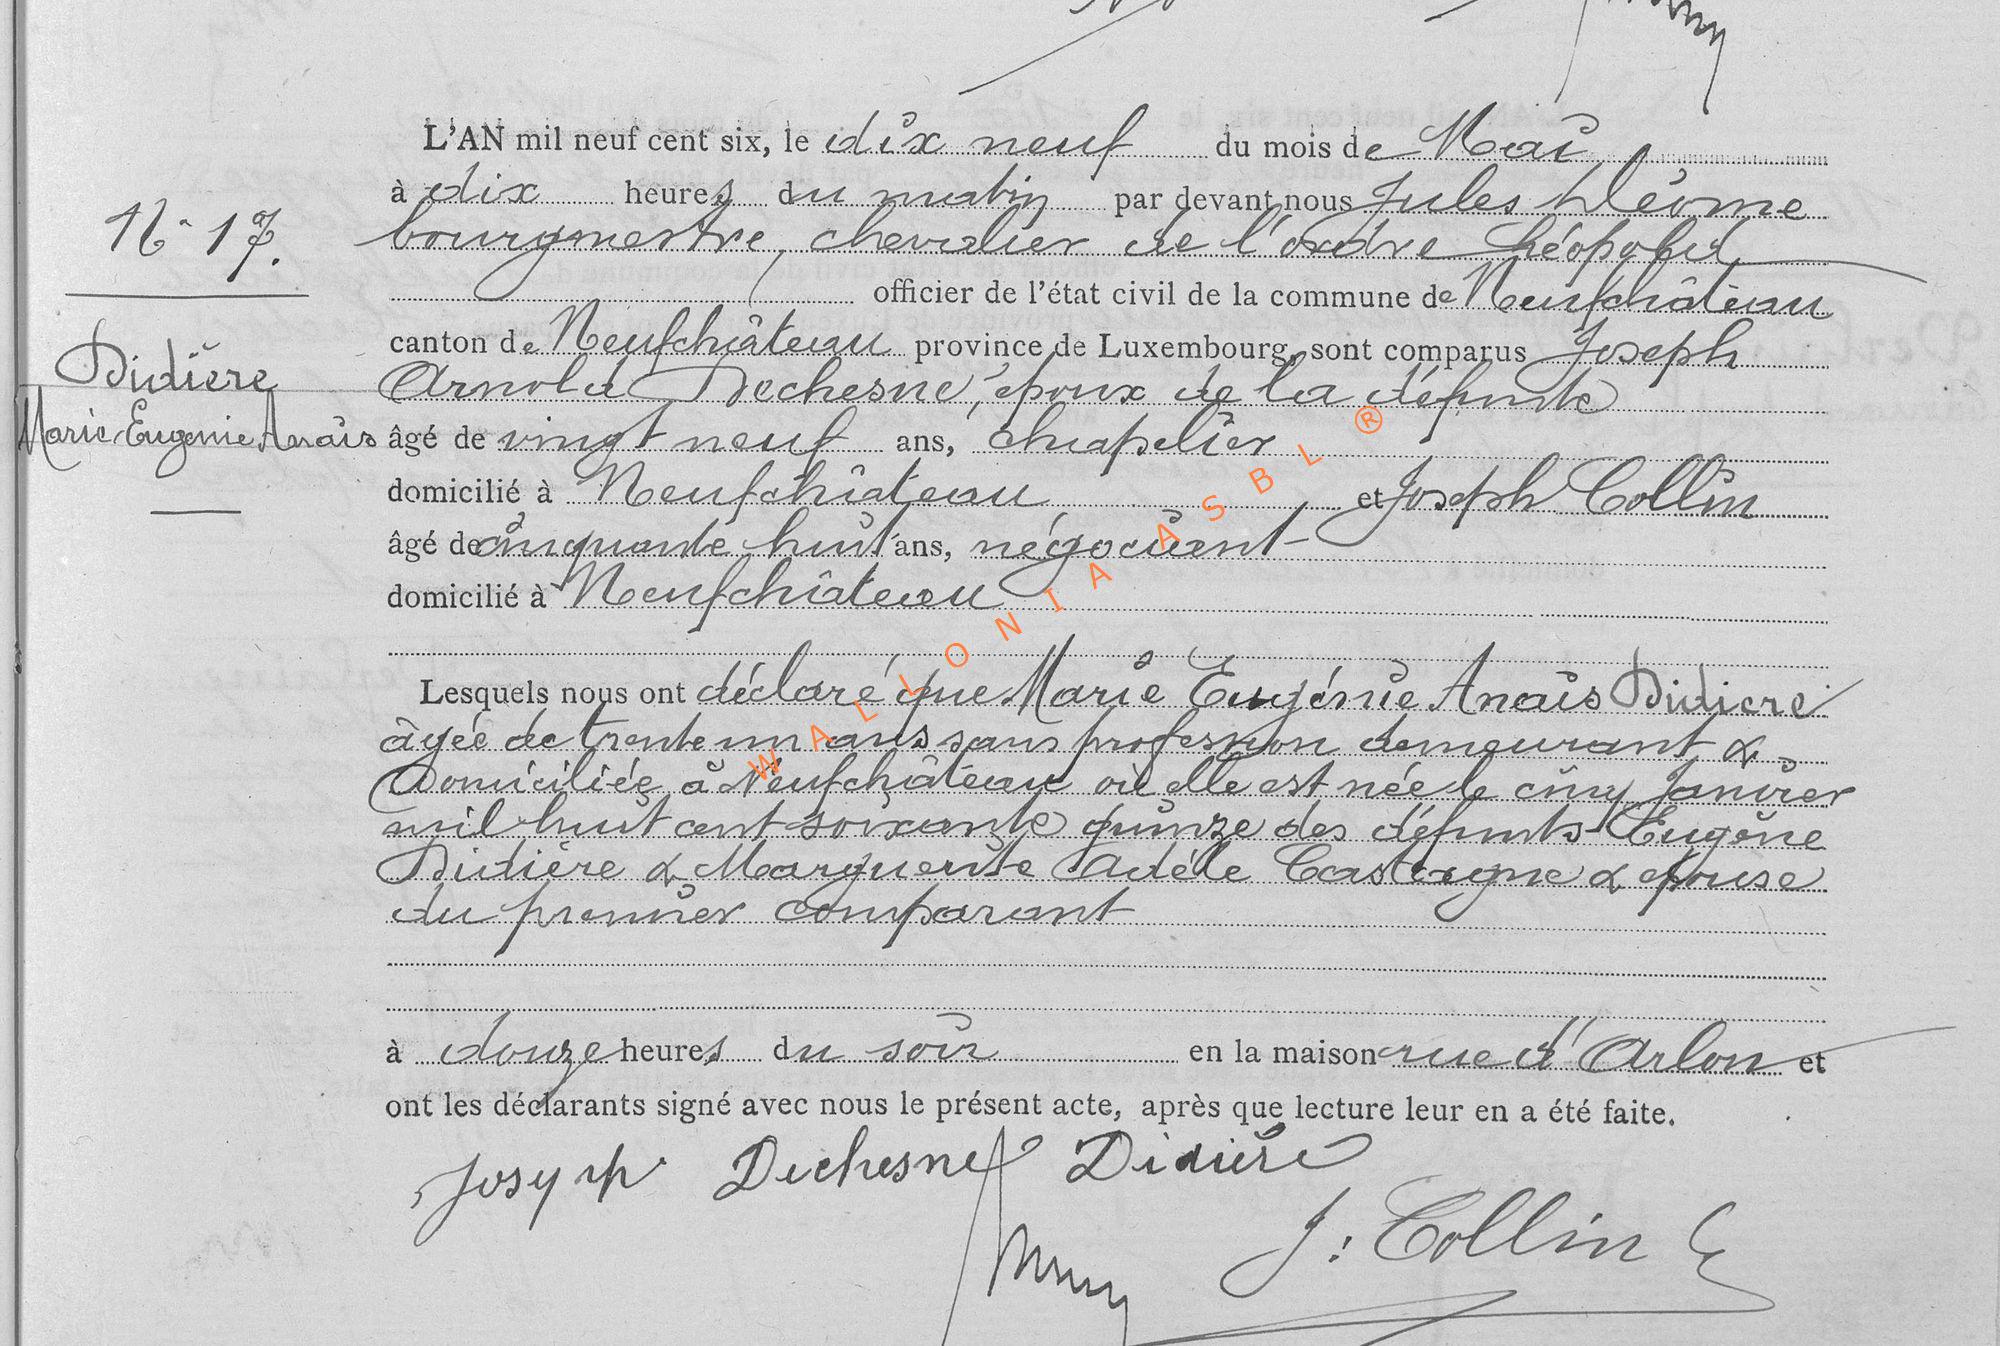 L'AN mil neuf cent six, le dix neuf du mois de Mai
à dix heures du matin par devant nous Jules
bourgmestre, chevalier de l'ordre Léopold
officier de l'état civil de la commune de Neufchâteau
canton de Neufchâteau province de Luxembourg, sont comparus Joseph
Arnold Dechesne, époux de la défunte
âgé de vingt neuf ans, chapelier
domicilié à Neufchâteau et Joseph Collin
âgé de cinquante huit ans, négociant
domicilié à Neufchâteau
Lesquels nous ont déclaré que Marie Eugénie Anaïs Didière
âgée de trente un ans sans profession demeurant &
domiciliée à Neufchâteau où elle est née le cinq Janvier
mil huit cent soixante quinze des défunts Eugène
Didière & Marguerite Adèle Castaigne & épouse
du premier comparant
à douze heures du soir en la maison rue d'Arlon et
ont les déclarants signé avec nous le présent acte, après que lecture leur en a été faite.
Joseph Dechesne Didière
J. Collin
N° 17.
Didière
Marie-Eugenie Anaïs
WALLONIA ASBL ®